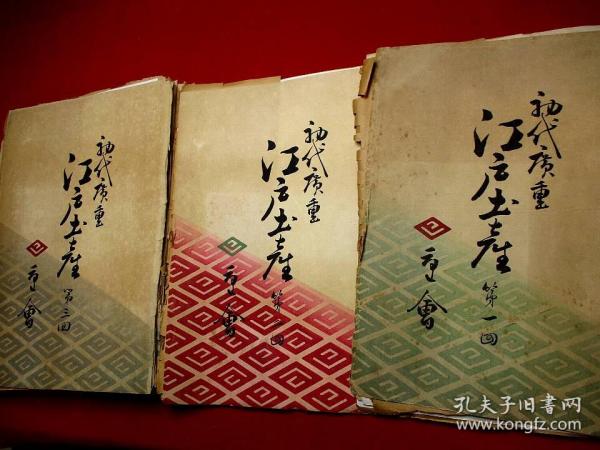 初代廣重
江戸土産 第一回
重會
初代廣重
江戸土産 第二回
重會
初代廣重
江戸土産 第三回
重會
孔夫子旧书网
www.kongfz.com